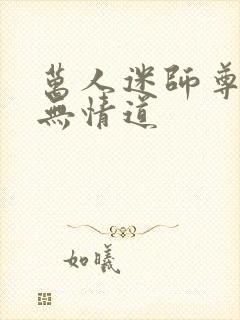 萬人迷師尊
無情道
如曦